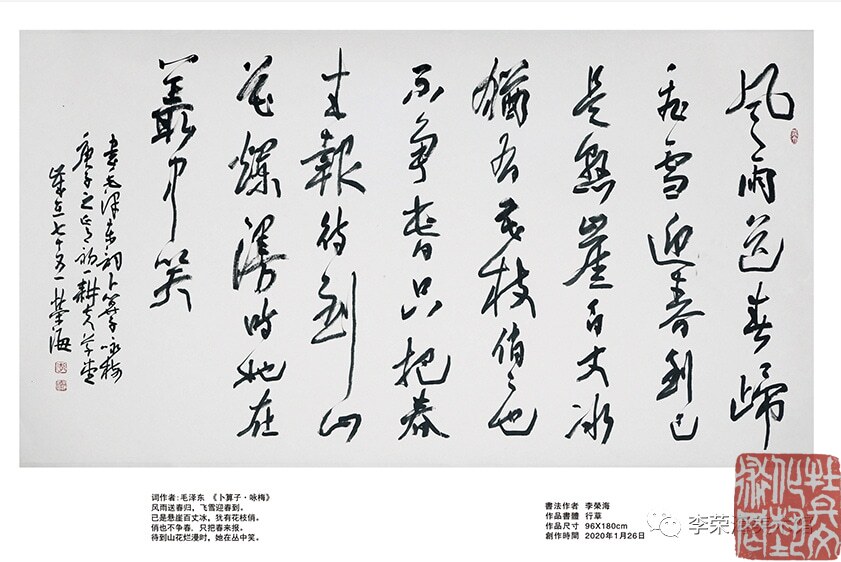 风雨送春歸
飛雪迎春到已
是懸崖百丈冰
猶有花枝俏々也
不争春只把春
来報待到山
花爛漫時她在
叢中笑
書毛泽东詞卜算子咏梅
庚子之正月初一耕夫草堂
七十又一榮海
词作者:毛泽东 《卜算子·咏梅》
风雨送春归，飞雪迎春到。
已是悬崖百丈冰，犹有花枝俏。
俏也不争春，只把春来报。
待到山花烂漫时，她在丛中笑。
書法作者 李榮海
作品書體 行草
作品尺寸 96X180cm
創作時間 2020年1月26日
李荣海